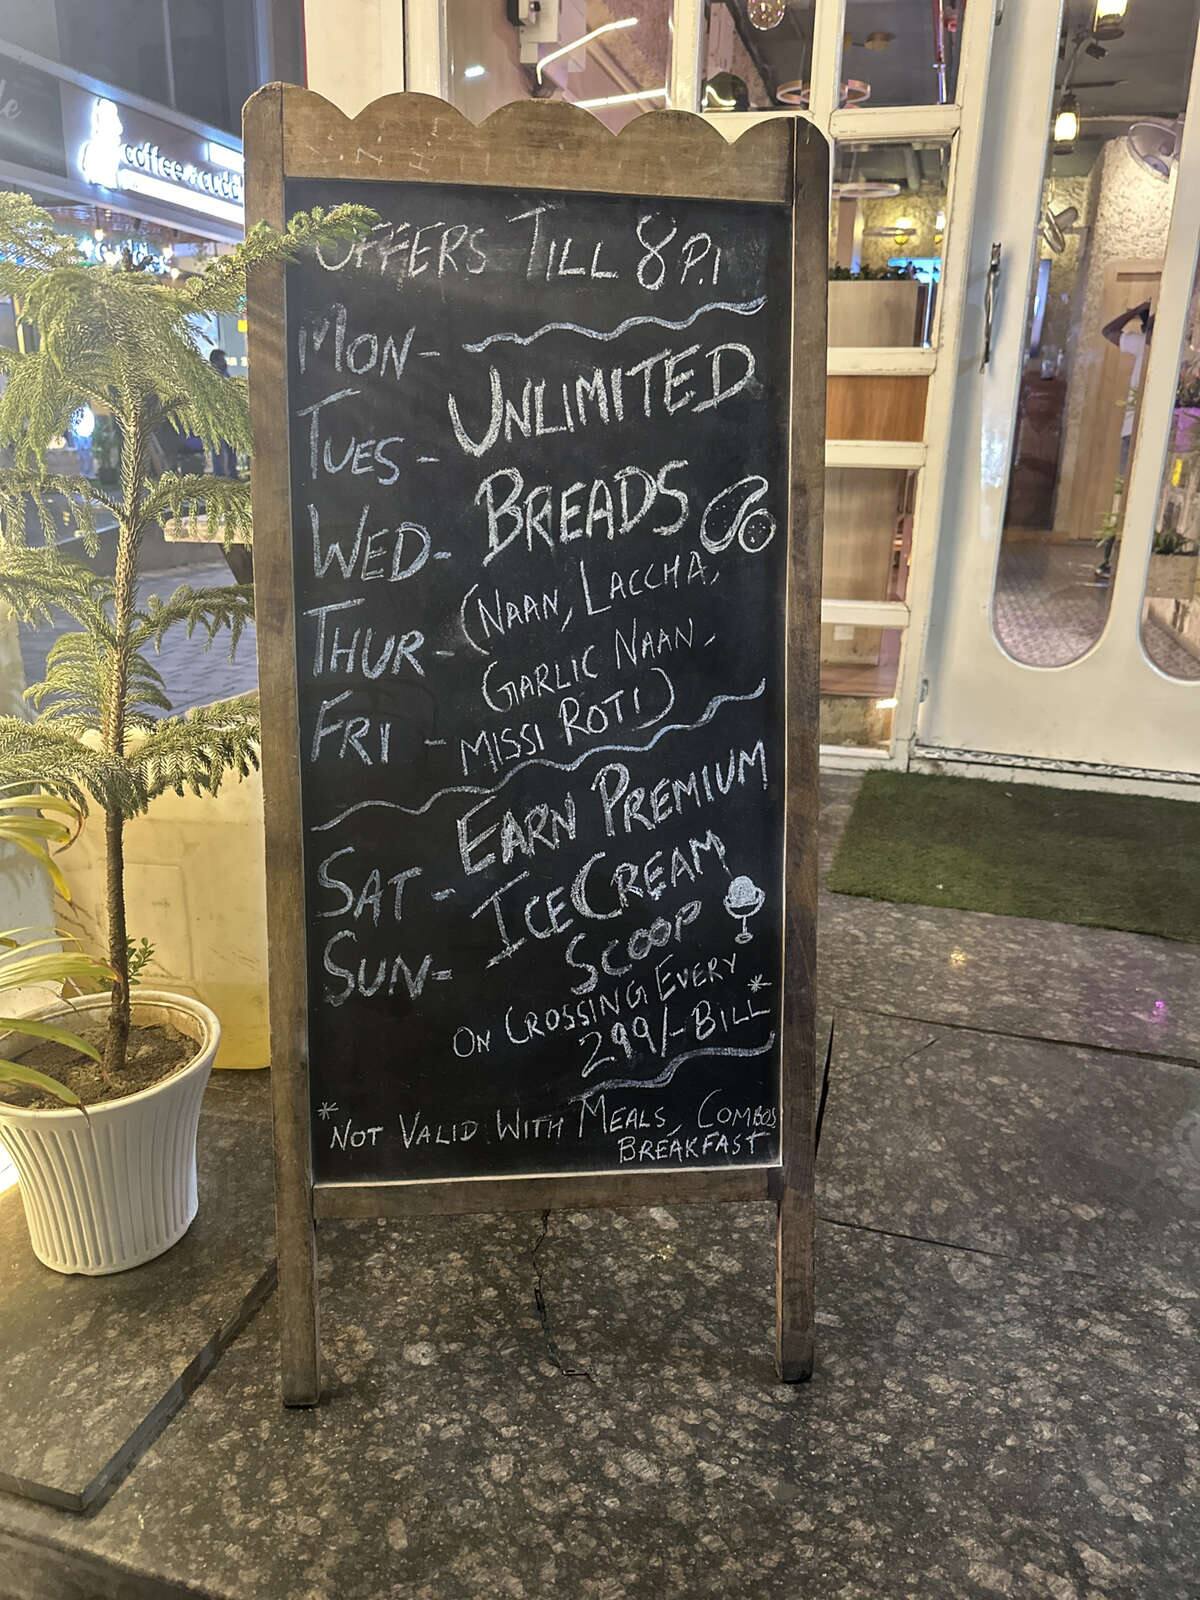 coffee
OFFERS TILL 8 P.
MON - UNLIMITED
TUES -
BREADS
WED -
(NAAN, LACCHA,
THUR -
GARLIC NAAN,
FRI - MISSI ROTI)
EARN PREMIUM
SAT - ICE CREAM
SCOOP
SUN =
ON CROSSING EVERY
299/- BILL*
*NOT VALID WITH MEALS, COMBOS
BREAKFAST